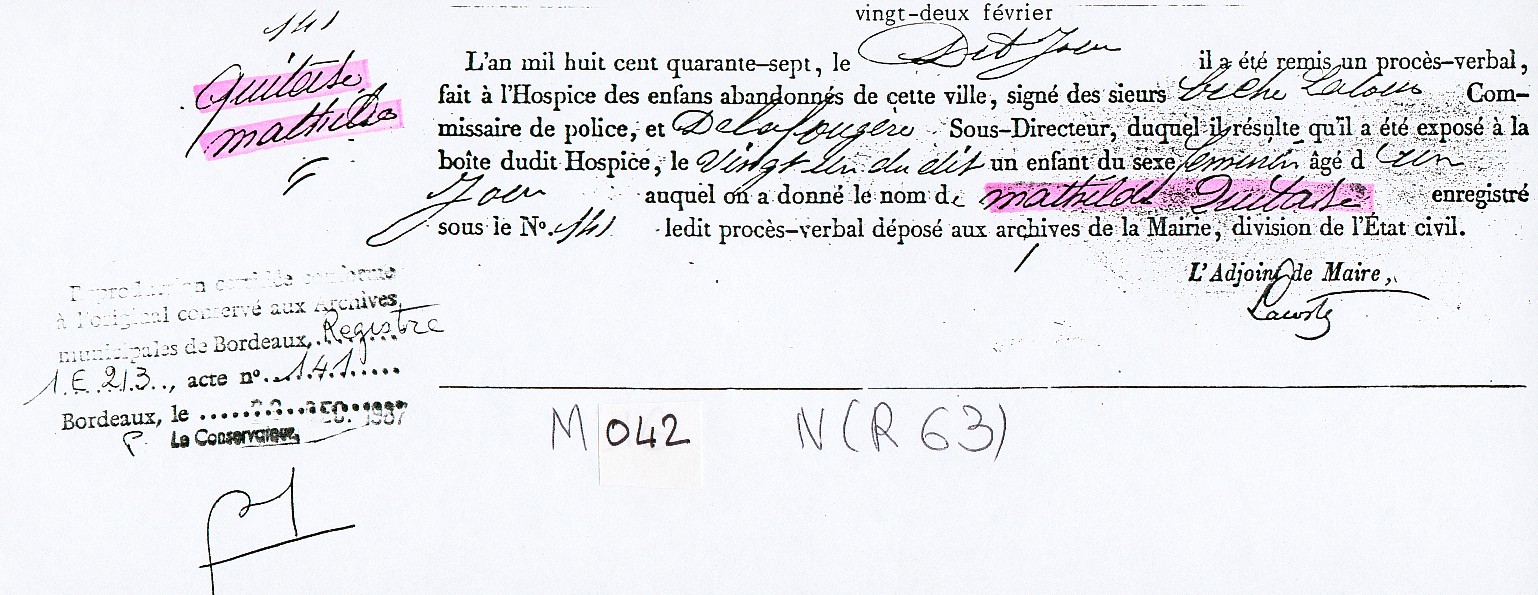 141
Quitase
mathilde
vingt-deux février
L'an mil huit cent quarante-sept, le Dit Jour il a été remis un procès-verbal,
fait à l'Hospice des enfans abandonnés de cette ville, signé des sieurs Com-
missaire de police, et Delafougère Sous-Directeur, duquel il résulte qu'il a été exposé à la
boîte dudit Hospice, le Vingt un du dit un enfant du sexe féminin âgé d'un
Jour auquel on a donné le nom de mathilde Quitase enregistré
sous le N°. 141 ledit procès-verbal déposé aux archives de la Mairie, division de l'État civil.
L'Adjoint de Maire,
Reproduction certifiée conforme
à l'original conservé aux Archives
municipales de Bordeaux, Registre
1.E.213., acte n°. 141
Bordeaux, le DEC. 1987
P. Le Conservateur,
M 042 N(R 63)